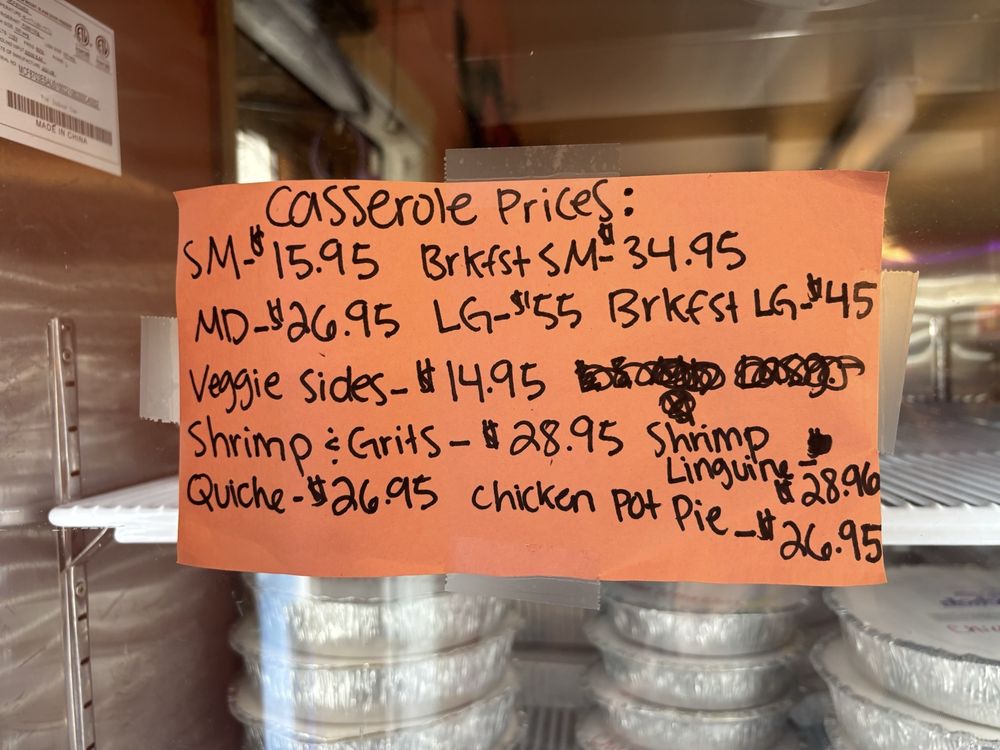 MADE IN CHINA
Casserole Prices:
SM-$15.95 Brkfst SM-$34.95
MD-$26.95 LG-$55 Brkfst LG-$45
Veggie Sides-$14.95
Shrimp & Grits-$28.95 Shrimp Linguine-$28.96
Quiche-$26.95 Chicken Pot Pie-$26.95